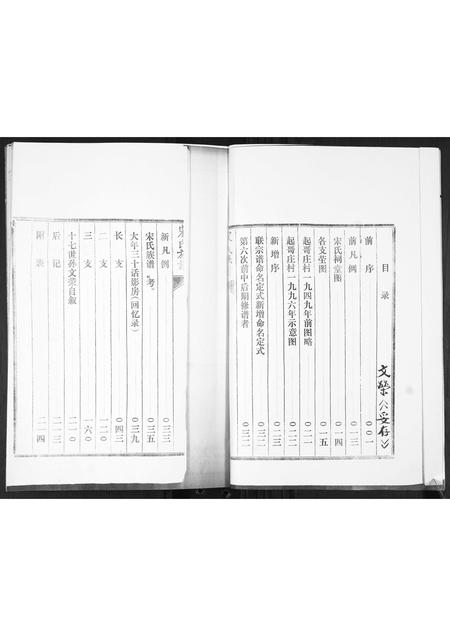 目录
文荣《妥存》
前序 〇〇一
前凡例 〇一三
宋氏祠堂图 〇一四
各支茔图 〇一五
起哥庄村一九四九年前图略
起哥庄村一九九六年示意图 〇二二
新增序
联宗谱命名定式新增命名定式
第六次前中后期修谱者 〇三二
新凡例 〇三三
宋氏族谱“考” 〇三五
大年三十话影房(回忆录) 〇三九
长支 〇四三
二支 一二〇
三支 一六〇
十七世孙文荣自叙 二一〇
后记 二一三
附表 二一四